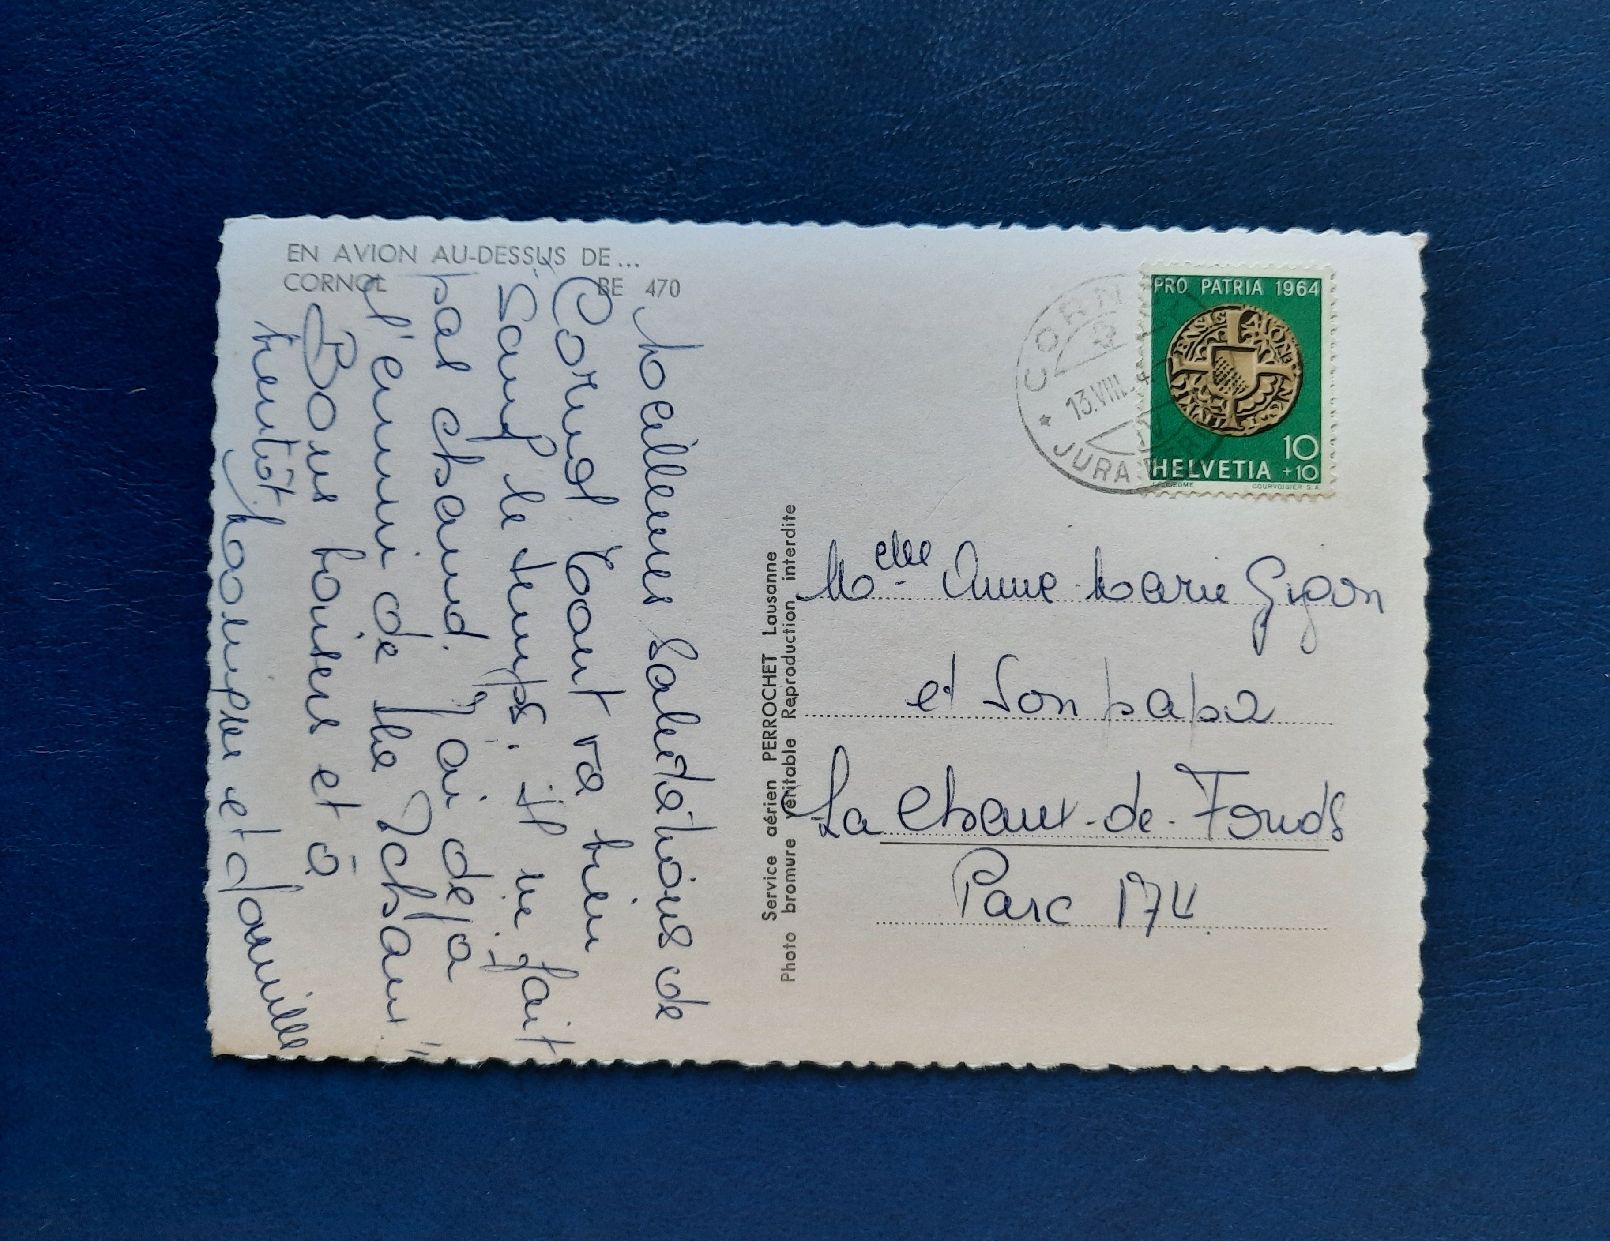 EN AVION AU-DESSUS DE...
CORNOL BE 470
Meilleures Salutations de
Cornol. Tout va bien
Sauf le temps. il ne fait
pas chaud. J'ai déjà
l'ennui de
Bons baisers et à
bientôt. et famille
Service aérien PERROCHET Lausanne
Photo bromure véritable Reproduction interdite
CORN
13.VIII.
JURA
PRO PATRIA 1964
10
+10
HELVETIA
COURVOISIER S.A.
Melle Anne Marie Gigon
et Son papa
La Chaux-de-Fonds
Parc 174